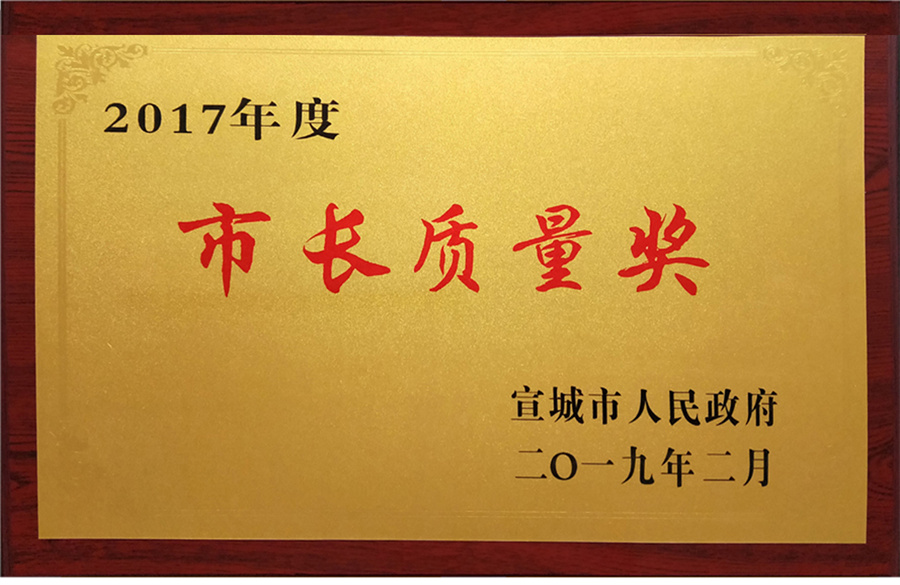 2017年度
市长质量奖
宣城市人民政府
二〇一九年二月